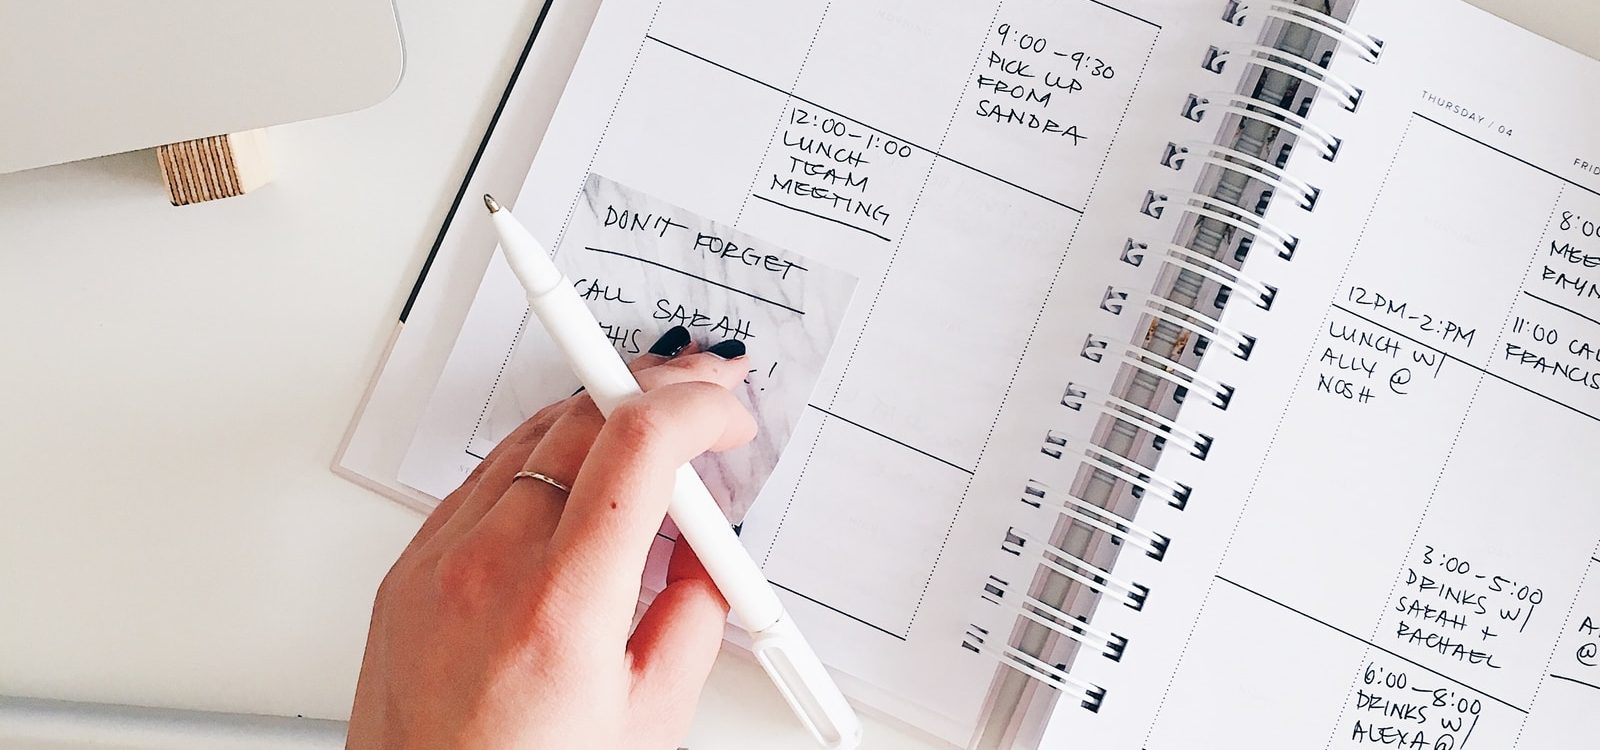 9:00-9:30
PICK UP
FROM
SANDRA
12:00-1:00
LUNCH
TEAM
MEETING
DON'T FORGET
CALL SARAH
THIS
THURSDAY / 04
12PM-2:PM
LUNCH W/
ALLY @
NOSH
3:00-5:00
DRINKS W/
SARAH +
RACHAEL
6:00-8:00
DRINKS W/
ALEXA @
11:00
FRANCIS